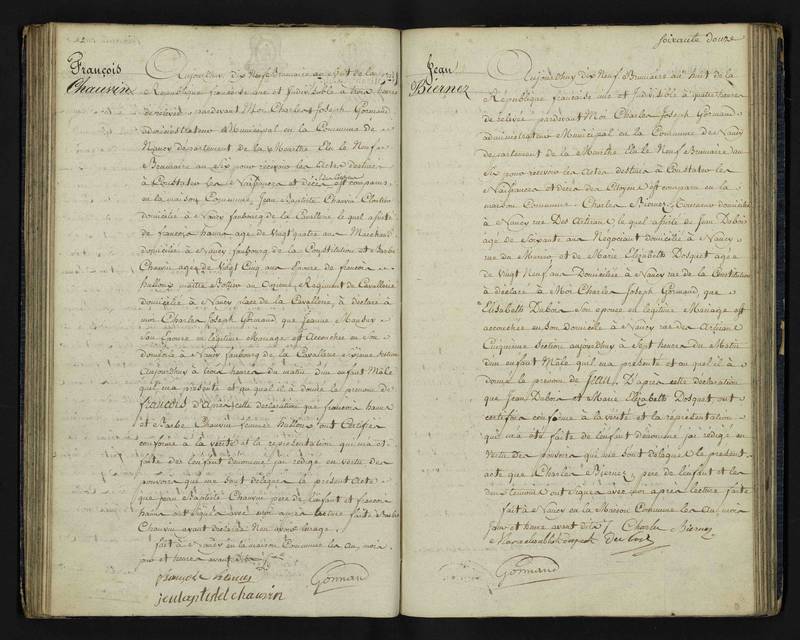 François
Chauvin
Aujourdhuy dix Neuf Brumaire an huit de la
République française une et Indivisible à trois heures
de relevée pardevant Moi Charles Joseph Gormand
administrateur Municipal en la Commune de
Nancy département de la Meurthe Elu le Neuf
Brumaire an Six pour recevoir les actes destinés
à Constater les Naissances et décès des Citoyens est comparu
en la maison Commune, Jean Baptiste Chauvin
domicilié à Nancy faubourg de la Cavallerie, lequel assisté
de francois agé de Vingt quatre ans Marchand
domicilié à Nancy faubourg de la Constitution et Barbe
Chauvin agée de Vingt Cinq ans Epouse de francois
hullon maitre Bottier au Régiment de Cavallerie
domiciliée à Nancy place de la Cavallerie, à déclaré à
moi Charles Joseph Gormand que Jeanne
Son Epouse en légitime Mariage est accouchée en son
domicile à Nancy faubourg de la Cavallerie Section
Aujourdhuy à trois heures du matin d'un enfant Mâle
quil ma présenté et auquel il à donné le prénom de
françois d'après cette déclaration que francois
et Barbe Chauvin femme hullon ont Certifié
conforme à la vérité et la représentation qui ma été
faite de lenfant dénommé jai rédigé en vertu des
pouvoirs qui me sont délégués le présent acte
que Jean Baptiste Chauvin père de l'enfant et francois
ont Signé avec moi après lecture faite Barbe
Chauvin ayant déclaré Non avoir lusage
fait à Nancy en la maison Commune les an, mois
jour et heures avant dits
françois
jeanbaptistel chauvin
Gormand
soixante douze
Jean
Biernez
Aujourdhuy dix Neuf Brumaire an huit de la
République française une et Indivisible à quatre heures
de relevée pardevant Moi Charles Joseph Gormand
administrateur Municipal en la Commune de Nancy
département de la Meurthe Elu le Neuf Brumaire an
Six pour recevoir les actes destinés à Constater les
Naissances et décès des Citoyens est comparu en la
maison Commune Charles Biernez domicilié
à Nancy rue Des Artisans, lequel assisté de Jean Dubois
agé de Soixante ans Négociant domicilié à Nancy
rue du et de Marie Elizabeth Dosquet agée
de Vingt Neuf ans Domiciliée à Nancy rue de la Constitution
à déclaré à Moi Charles Joseph Gormand que
Elisabeth Dubois son épouse en légitime Mariage est
accouchée en son Domicile à Nancy rue des Artisans
Cinquième Section aujourdhuy à Sept heures du Matin
d'un enfant Mâle quil ma présenté et auquel il à
donné le prénom de JEAN, D'après cette déclaration
que Jean Dubois et Marie Elizabeth Dosquet ont
certifiée conforme à la vérité et la représentation
qui ma été faite de lenfant dénommé jai rédigé en
Vertu des pouvoirs qui me sont délégués le présent
acte que Charles Biernez, père de l'enfant et les
deux temoins ont Signé avec moi après lecture faite
fait à Nancy en la Maison Commune les an, mois
jour et heure avant dits Charles Biernez
Marie elisabeth dosquet
Gormand